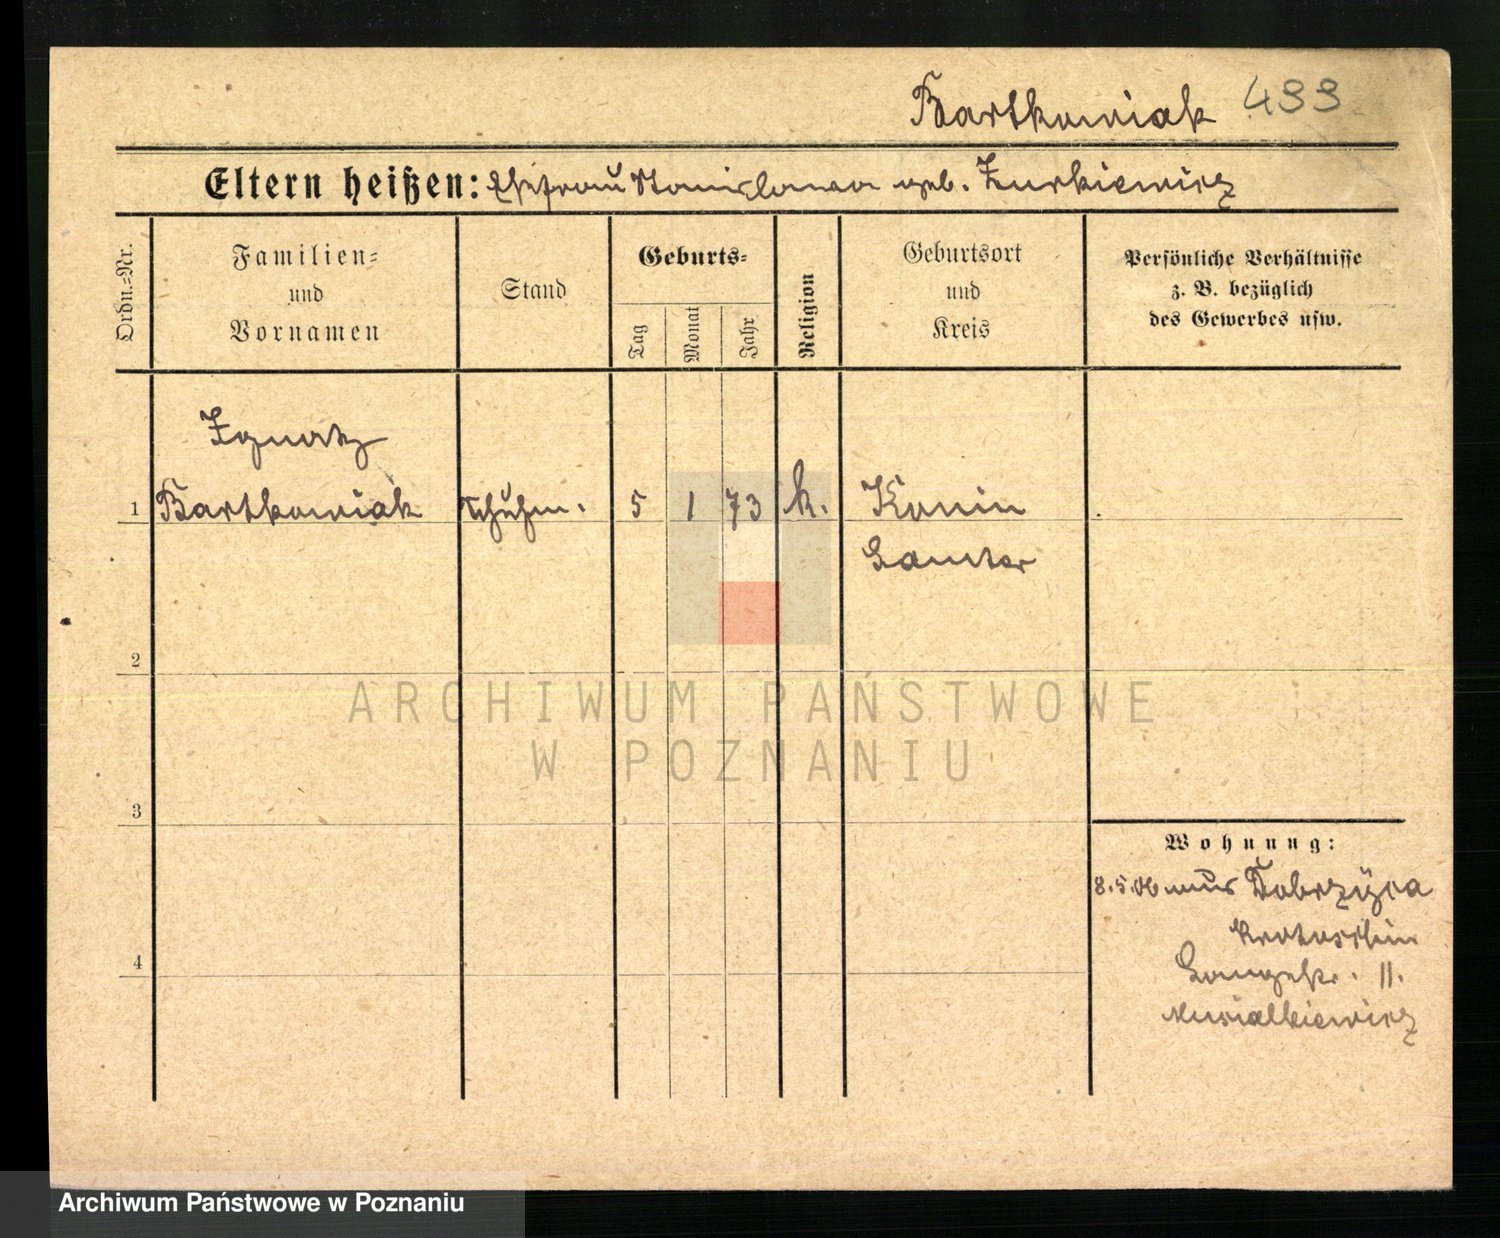 Bartkowiak 499
Eltern heißen: Ehefrau Stanislawa geb. Zurkiewicz
Ordn.-Nr.
Familien-
und
Vornamen
Stand
Geburts-
Tag
Monat
Jahr
Religion
Geburtsort
und
Kreis
Persönliche Verhältnisse
z. B. bezüglich
des Gewerbes usw.
Ignatz
1 Bartkowiak Schuhm. 5 1 73 k. Konin
Samter
2
ARCHIWUM PAŃSTWOWE
W POZNANIU
3
Wohnung:
8.5.06 aus Dobrzyca
Krotoschin
Langestr. 11.
Musialkiewicz
4
Archiwum Państwowe w Poznaniu